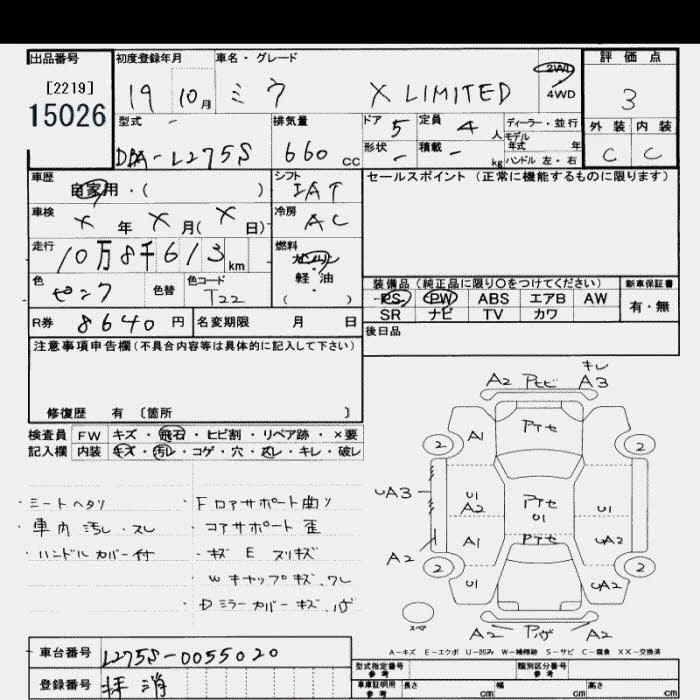 出品番号 初度登録年月 車名・グレード 評価点
[2219] 19 10月 ミラ X LIMITED 2WD 4WD 3
15026
型式 排気量 ドア 定員 ディーラー・並行 外装 内装
DBA-L275S 660 cc 5 4人 モデル年式 年 C C
形状 - 積載 - kg ハンドル 左・右
車歴 シフト セールスポイント (正常に機能するものに限ります)
自家用・( ) IAT
車検 冷房
X 年 X 月( X 日) AC
走行 燃料
10万8千613km ガソリン
軽・油
色 色替 色コード ( )
ピンク T22
装備品 (純正品に限り○をつけてください) 新車保証書
PS PW ABS エアB AW 有・無
SR ナビ TV カワ
R券 8640円 名変期限 月 日 後日品
注意事項申告欄(不具合内容等は具体的に記入して下さい)
修復歴 有 〔箇所 〕
検査員 FW キズ・飛石・ヒビ割・リペア跡・×要
記入欄 内装 キズ・汚レ・コゲ・穴・スレ・キレ・破レ
・シートヘタリ ・Fロアサポート曲リ
・車内汚レ・スレ ・コアサポート歪
・ハンドルカバー付 ・キズ E スリキズ
・Wキャップキズ、ワレ
・Dミラーカバーキズ、ハゲ
キレ
A2 Pセビ A3
A1 Pアセ
2 2
UA3 U1 A2 Pアセ U1 U1
A2 A1 Pアセ UA2
2 2
U1 UA2
スペア A2 Pハゲ A2
A-キズ E-エクボ U-凹み W-補修跡 S-サビ C-腐食 XX-交換済
車台番号 L275S-0055020
登録番号 抹消
型式指定番号 参考 類別区分番号 参考
車庫証明用 参考 長さ cm 幅 cm 高さ cm